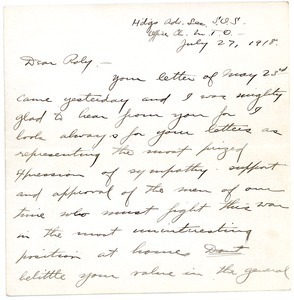 Hdqs Adv. Sec. S.O.S.
Office Ch. M.T.O.-
July 27, 1918.
Dear Roly,-
Your letter of May 23d
came yesterday and I was mighty
glad to hear from you for I
look always for your letters as
representing the most prized
expression of sympathy support
and approval of the men of our
time who must fight this war
in the most uninteresting
position at home. Don't
belittle your value in the general